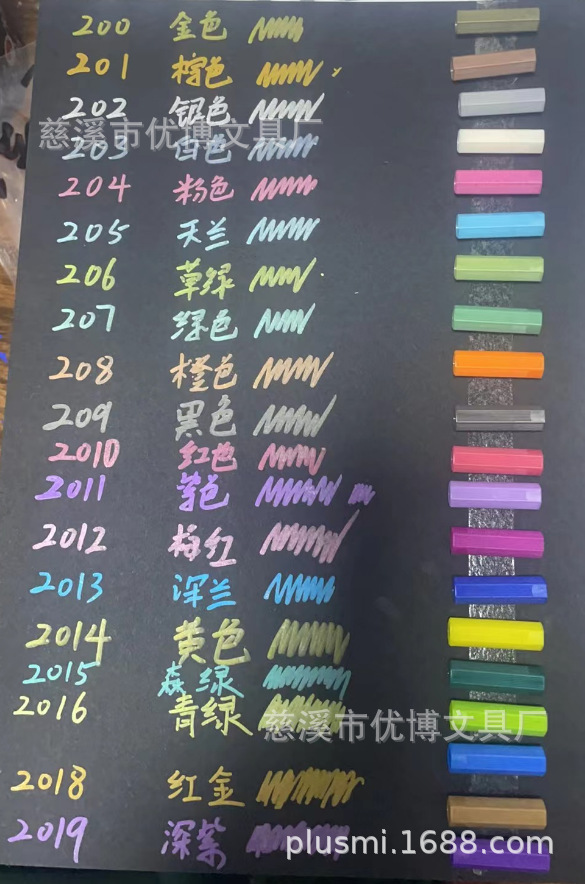 200 金色
201 棕色
202 银色
慈溪市优博文具厂
203 白色
204 粉色
205 天兰
206 草绿
207 绿色
208 橙色
209 黑色
2010 红色
2011 紫色
2012 梅红
2013 深兰
2014 黄色
2015 森绿
2016 青绿
慈溪市优博文具厂
2018 红金
2019 深紫
plusmi.1688.com